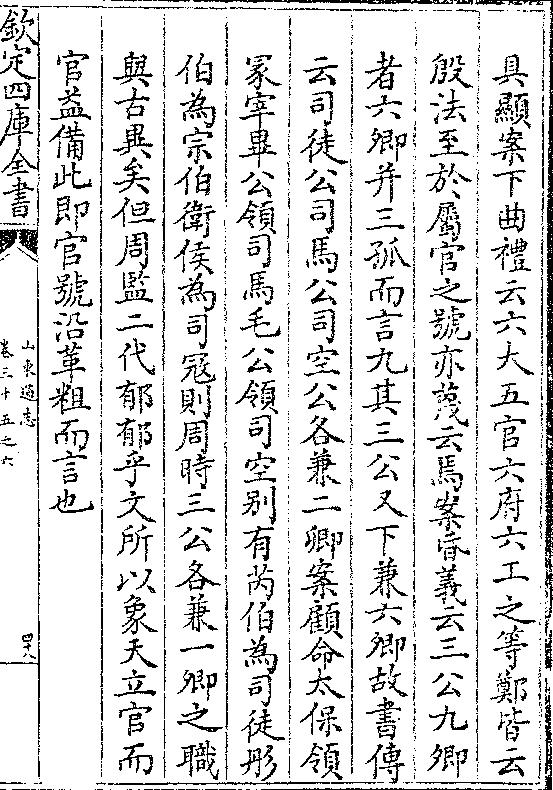 具顯案下曲禮云六大五官六府六工之等鄭皆云
殷法至於屬官之號亦蔑云焉案昏義云三公九卿
者六卿并三孤而言九其三公又下兼六卿故書傳
云司徒公司馬公司空公各兼二卿案顧命太保領
冢宰畢公領司馬毛公領司空別有芮伯為司徒彤
伯為宗伯衛侯為司寇則周時三公各兼一卿之職
與古異矣但周監二代郁郁乎文所以象天立官而
官益備此即官號沿革粗而言也
欽定四庫全書
山東通志
卷三十五之六
四十八